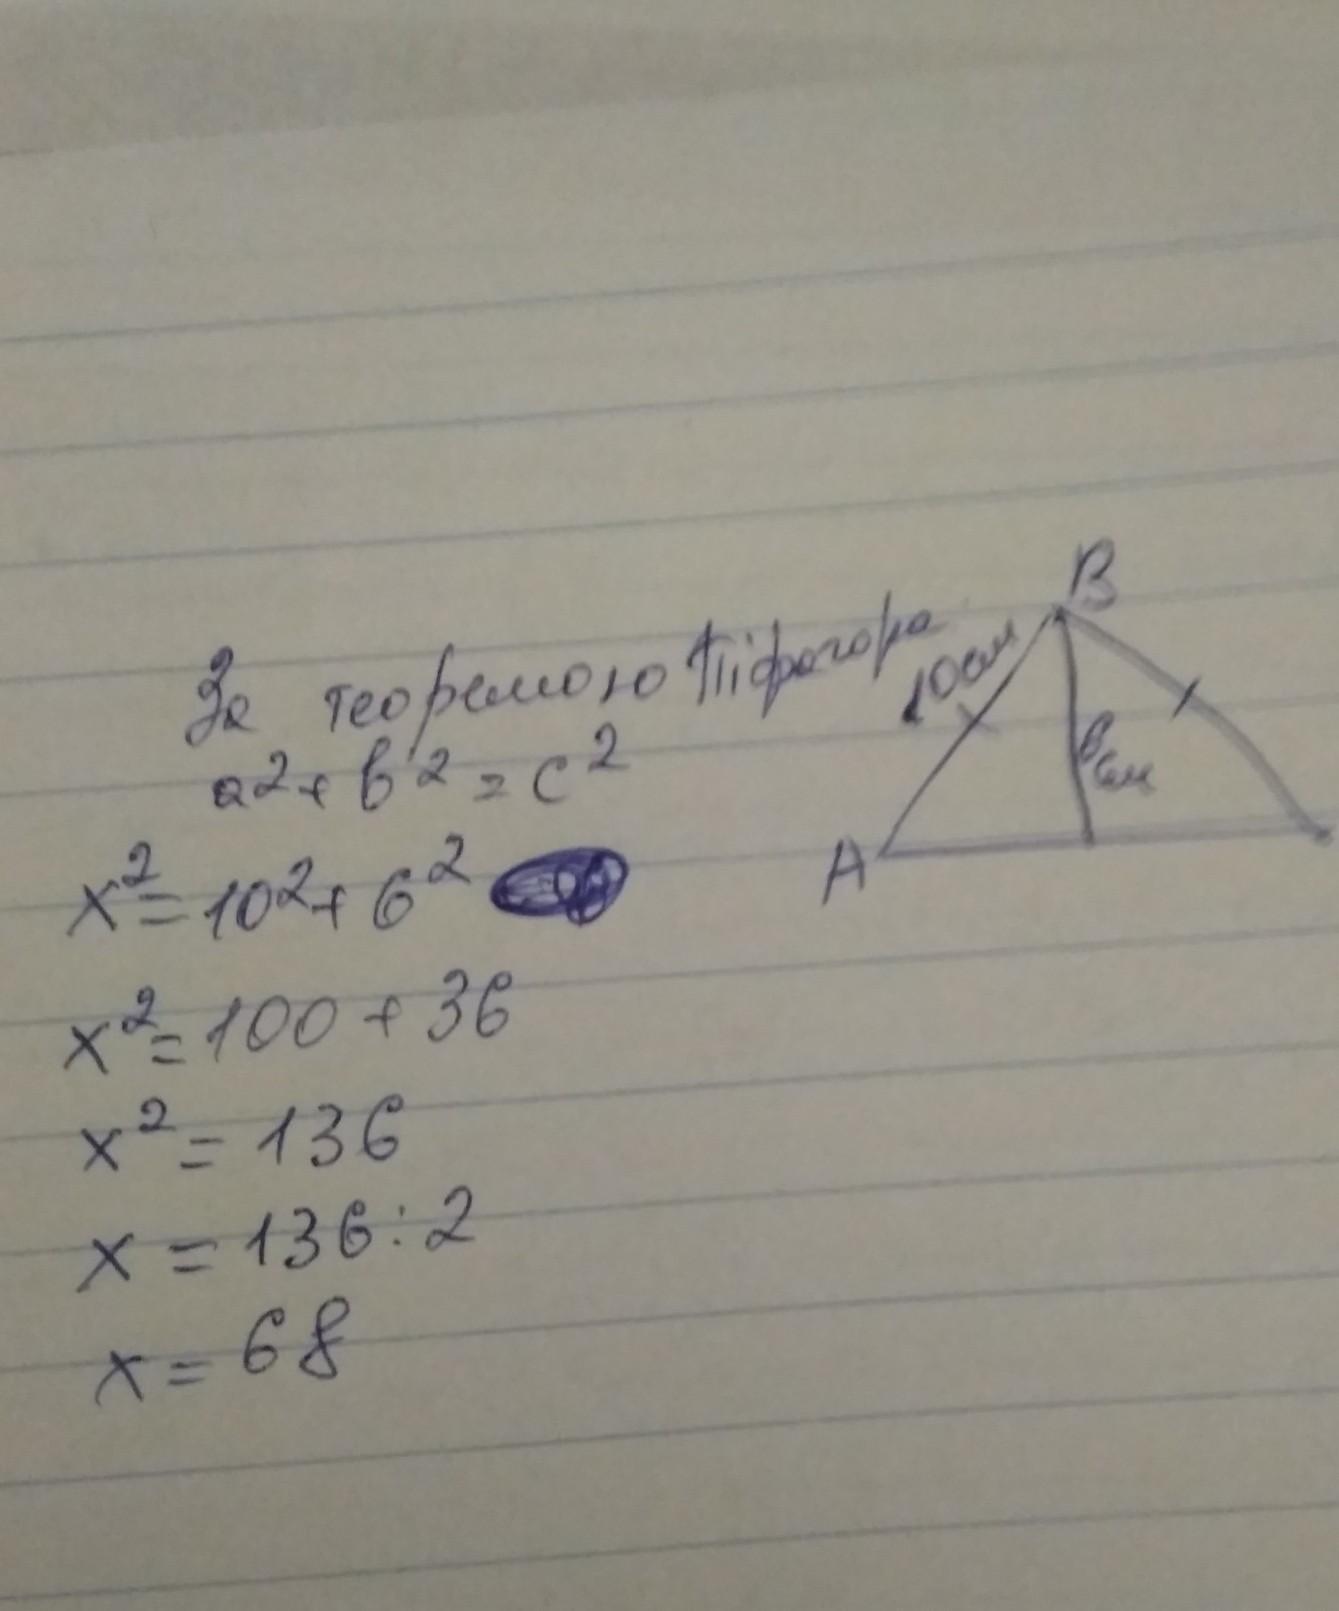 За теоремою Піфагора
a² + b² = c²
x² = 10² + 6²
x² = 100 + 36
x² = 136
x = 136 : 2
x = 68
B
10см
6см
A